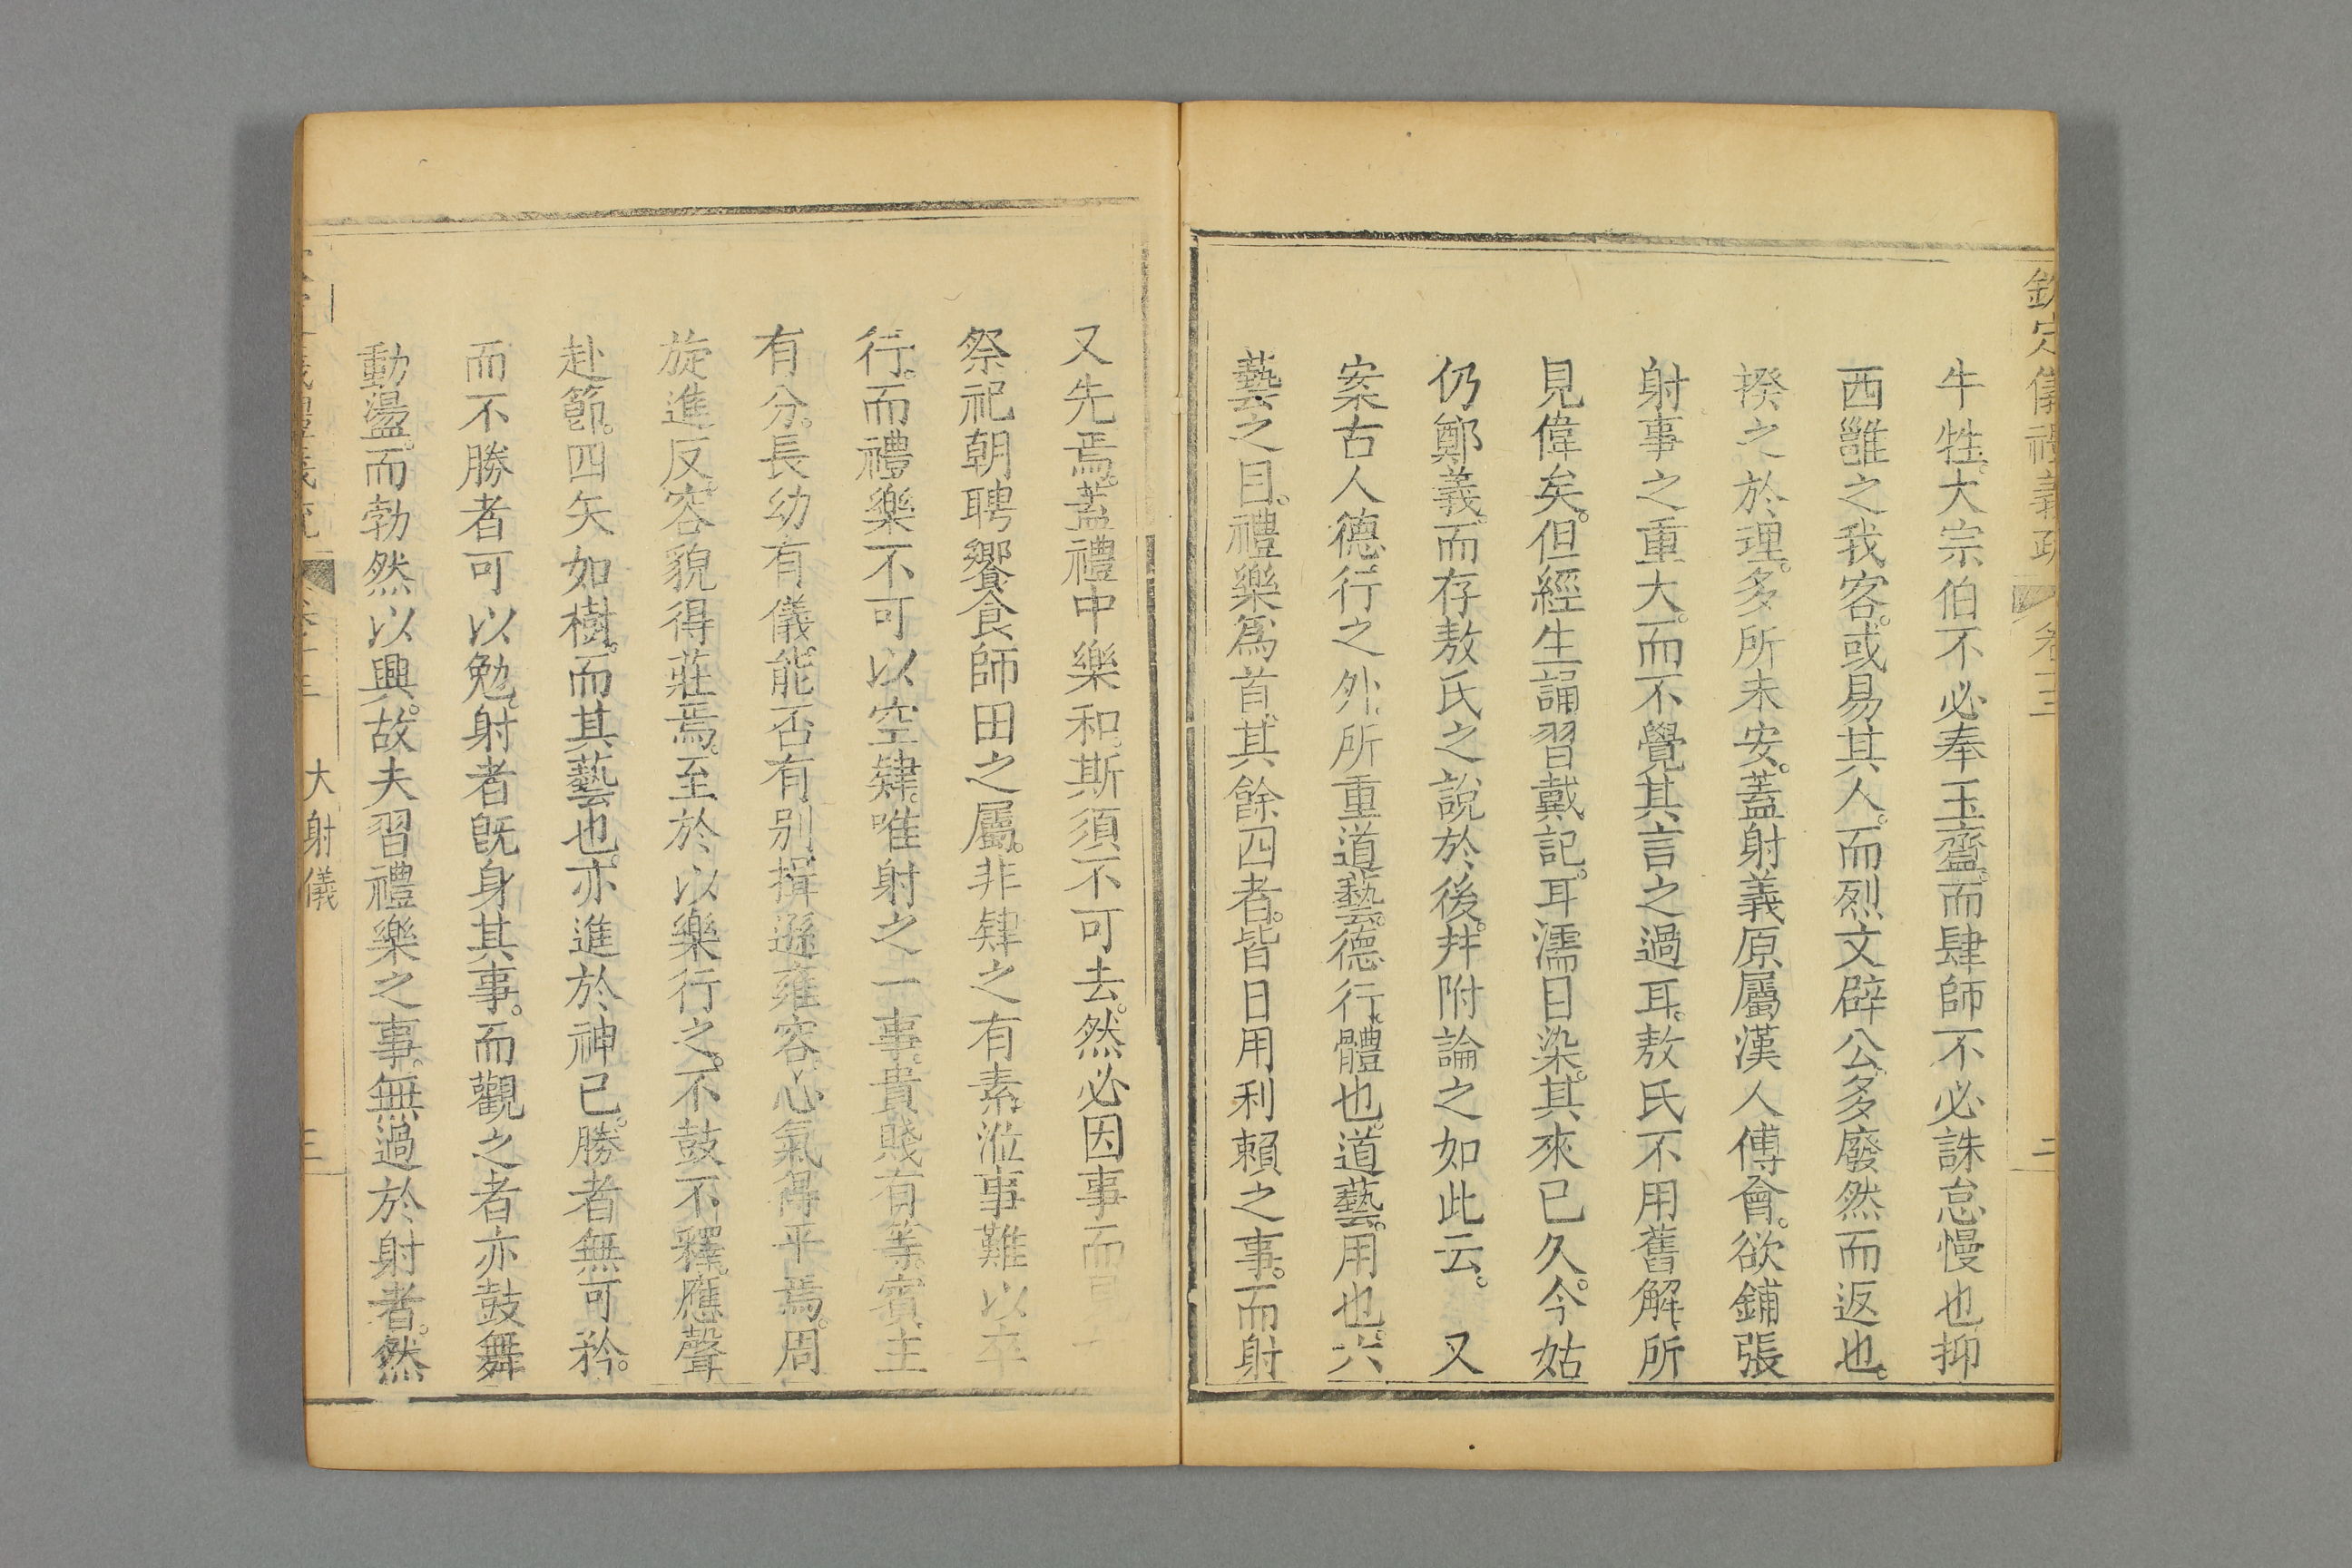 欽定儀禮義疏 卷十三 二
牛牲。大宗伯不必奉玉齍。而肆師不必誅怠慢也抑
西雝之我客。或易其人。而烈文辟公。多廢然而返也。
揆之於理。多所未安。蓋射義原屬漢人傅會。欲鋪張
射事之重大。而不覺其言之過耳。敖氏不用舊解。所
見偉矣。但經生誦習戴記。耳濡目染。其來已久。今姑
仍鄭義。而存敖氏之說於後。幷附論之如此云。 又
案古人德行之外。所重道藝。德行。體也。道藝。用也。六
藝之目。禮樂爲首。其餘四者。皆日用利賴之事。而射
又先焉。蓋禮中樂和。斯須不可去。然必因事而
祭祀朝聘饗食師田之屬。非肄之有素。涖事難以卒
行。而禮樂不可以空肄。唯射之一事。貴賤有等。賓主
有分。長幼有儀。能否有别。揖遜雍容。心氣得平焉。周
旋進反。容貌得莊焉。至於以樂行之。不鼓不釋。應聲
赴節。四矢如樹。而其藝也。亦進於神已。勝者無可矜。
而不勝者可以勉。射者旣身其事。而觀之者亦鼓舞
動盪。而勃然以興。故夫習禮樂之事。無過於射者。然
大射儀 三